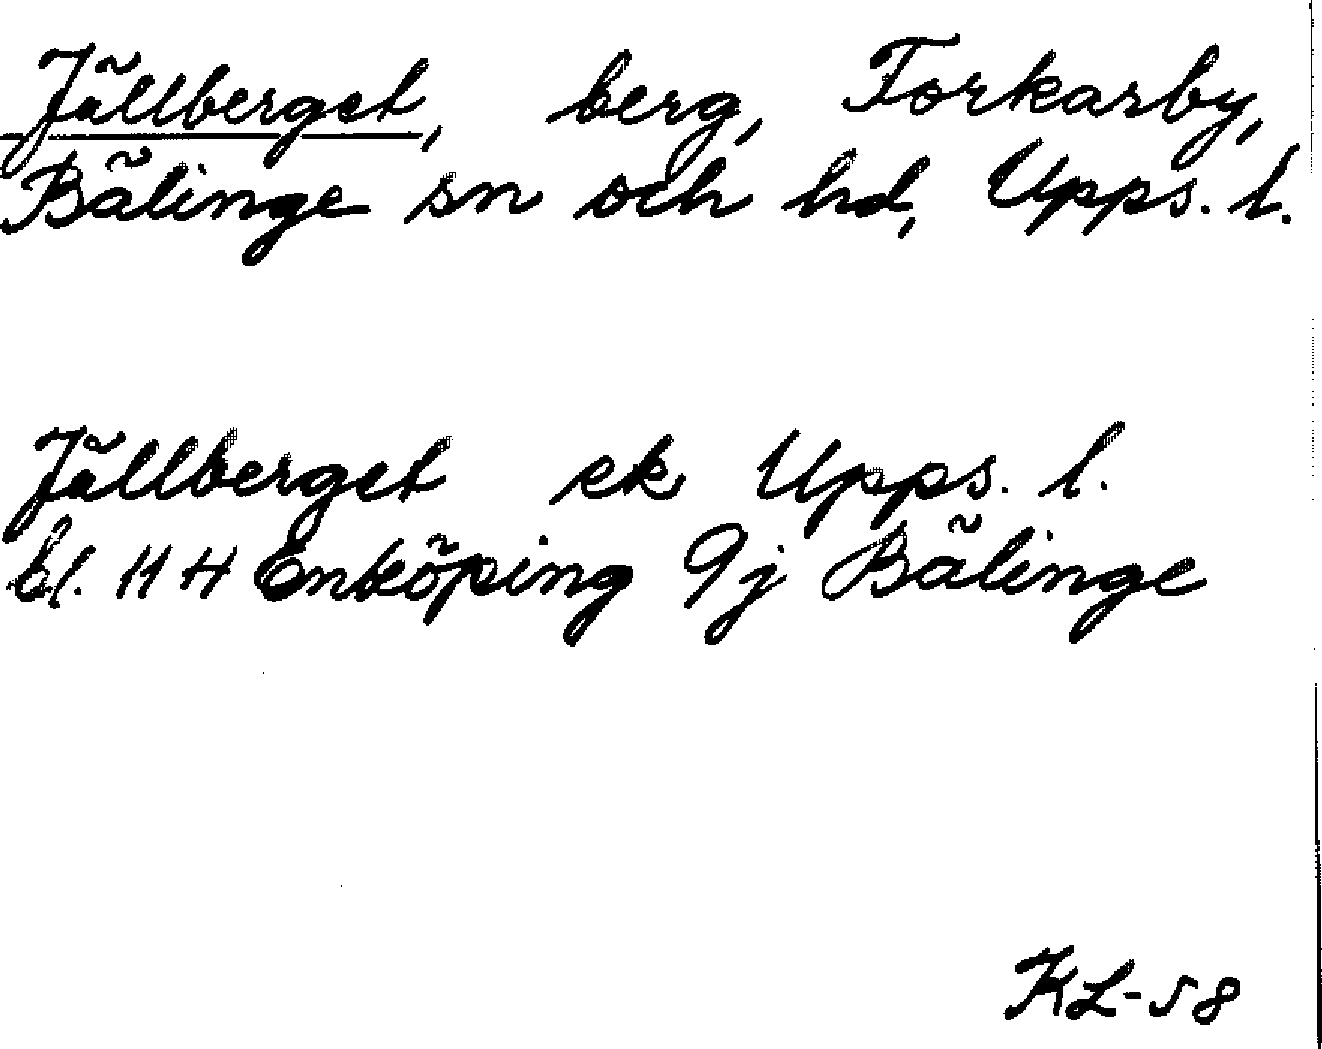 Jällberget, berg, Forkarby,
Bälinge sn och hd, Upps. l.
Jällberget ek Upps. l.
bl. 11 H Enköping 9j Bälinge
KL-58